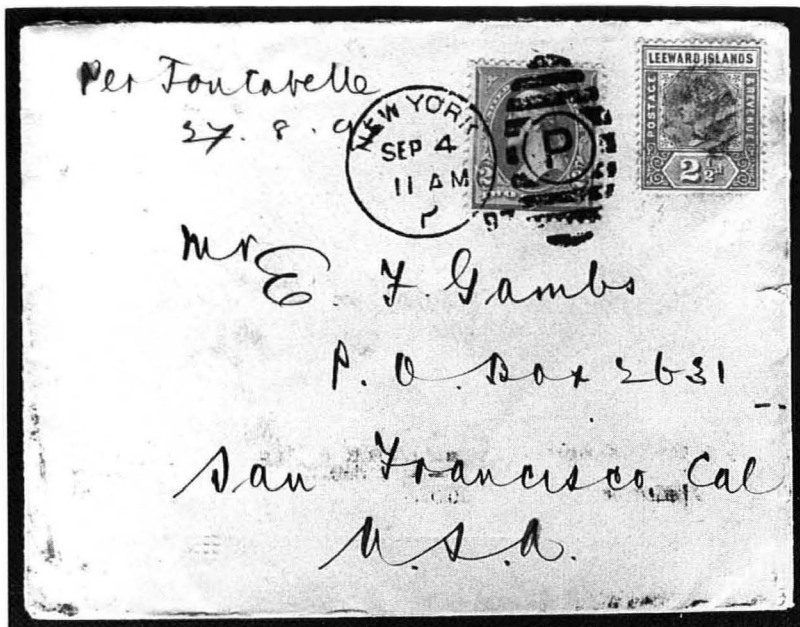 Per Fontabelle
27. 8. 9
NEW YORK
SEP 4
11 AM
P
TWO
LEEWARD ISLANDS
POSTAGE
& REVENUE
2 1/2d
Mr E. F. Gambs
P. O. Box 2631
San Francisco, Cal
U. S. A.